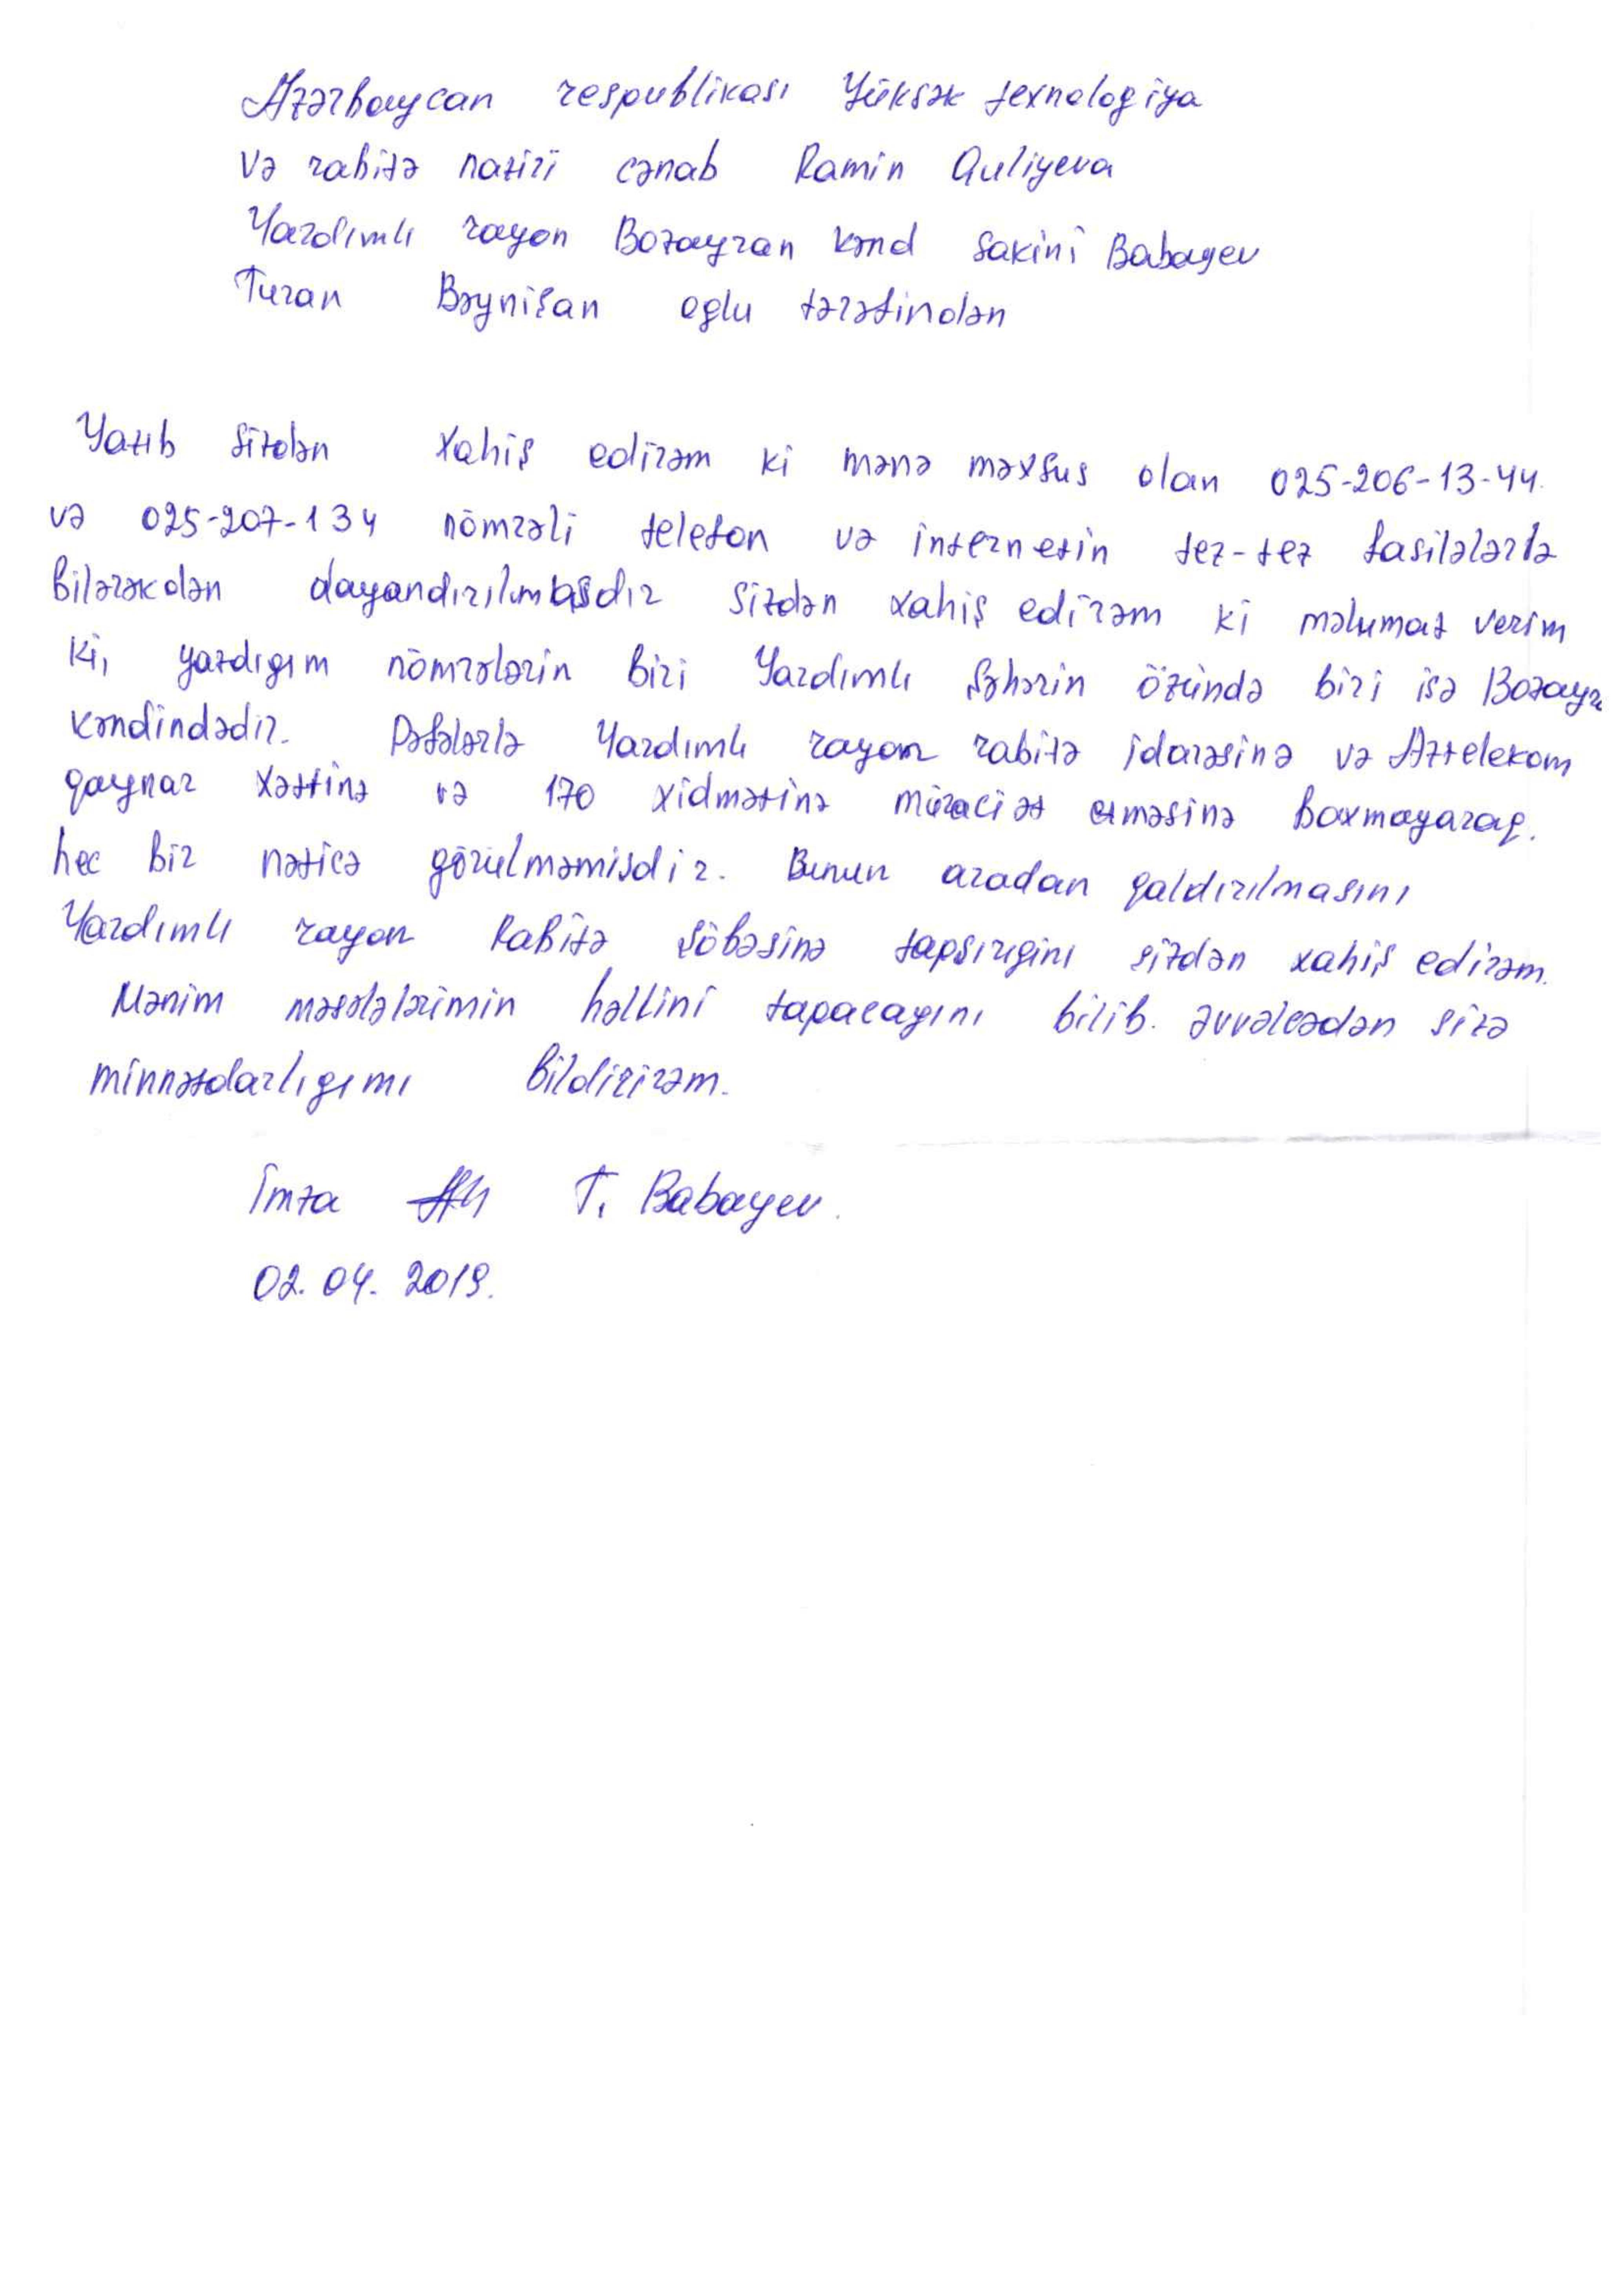 Azərbaycan respublikası Yüksək texnologiya
və rabitə naziri cənab Ramin Quliyeva
Yardımlı rayon Bozayran kənd sakini Babayev
Turan Bəynişan oglu tərəfindən
Yazıb sizdən xahiş edirəm ki mənə məxsus olan 025-206-13-44
və 025-207-134 nömrəli telefon və internetin tez-tez fasilələrlə
bilərəkdən dayandırılmasdır sizdən xahiş edirəm ki məlumat verim
ki, yazdıgım nömrələrin biri Yardımlı şəhərin özündə biri isə Bozayr
kəndindədir. Dəfələrlə Yardımlı rayon rabitə idarəsinə və Aztelekom
qaynar xəttinə və 170 xidmətinə müraciət etməsinə baxmayaraq.
hec bir nəticə görülməmisdir. Bunun aradan qaldırılmasını
Yardımlı rayon Rabitə şöbəsinə tapşırıgını sizdən xahiş edirəm.
Mənim məsələlərimin həllini tapacagını bilib. əvvəlcədən sizə
minnətdarlıgımı bildirirəm.
İmza T. Babayev.
02.04.2019.